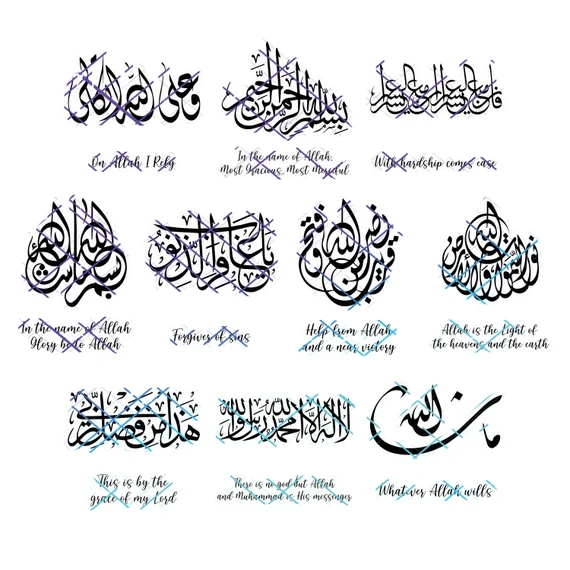 وعلى الله اتكالي
On Allah I Rely
بسم الله الرحمن الرحيم
In the name of Allah,
Most Gracious, Most Merciful
With hardship comes ease
In the name of Allah
Glory be to Allah
يا غافر الذنوب
Forgiver of sins
نصر من الله وفتح قريب
Help from Allah
and a near victory
الله نور السموات والأرض
Allah is the Light of
the heavens and the earth
هذا من فضل ربي
This is by the
grace of my Lord
لا إله إلا الله محمد رسول الله
There is no god but Allah
and Muhammad is His messenger
ما شاء الله
Whatever Allah wills